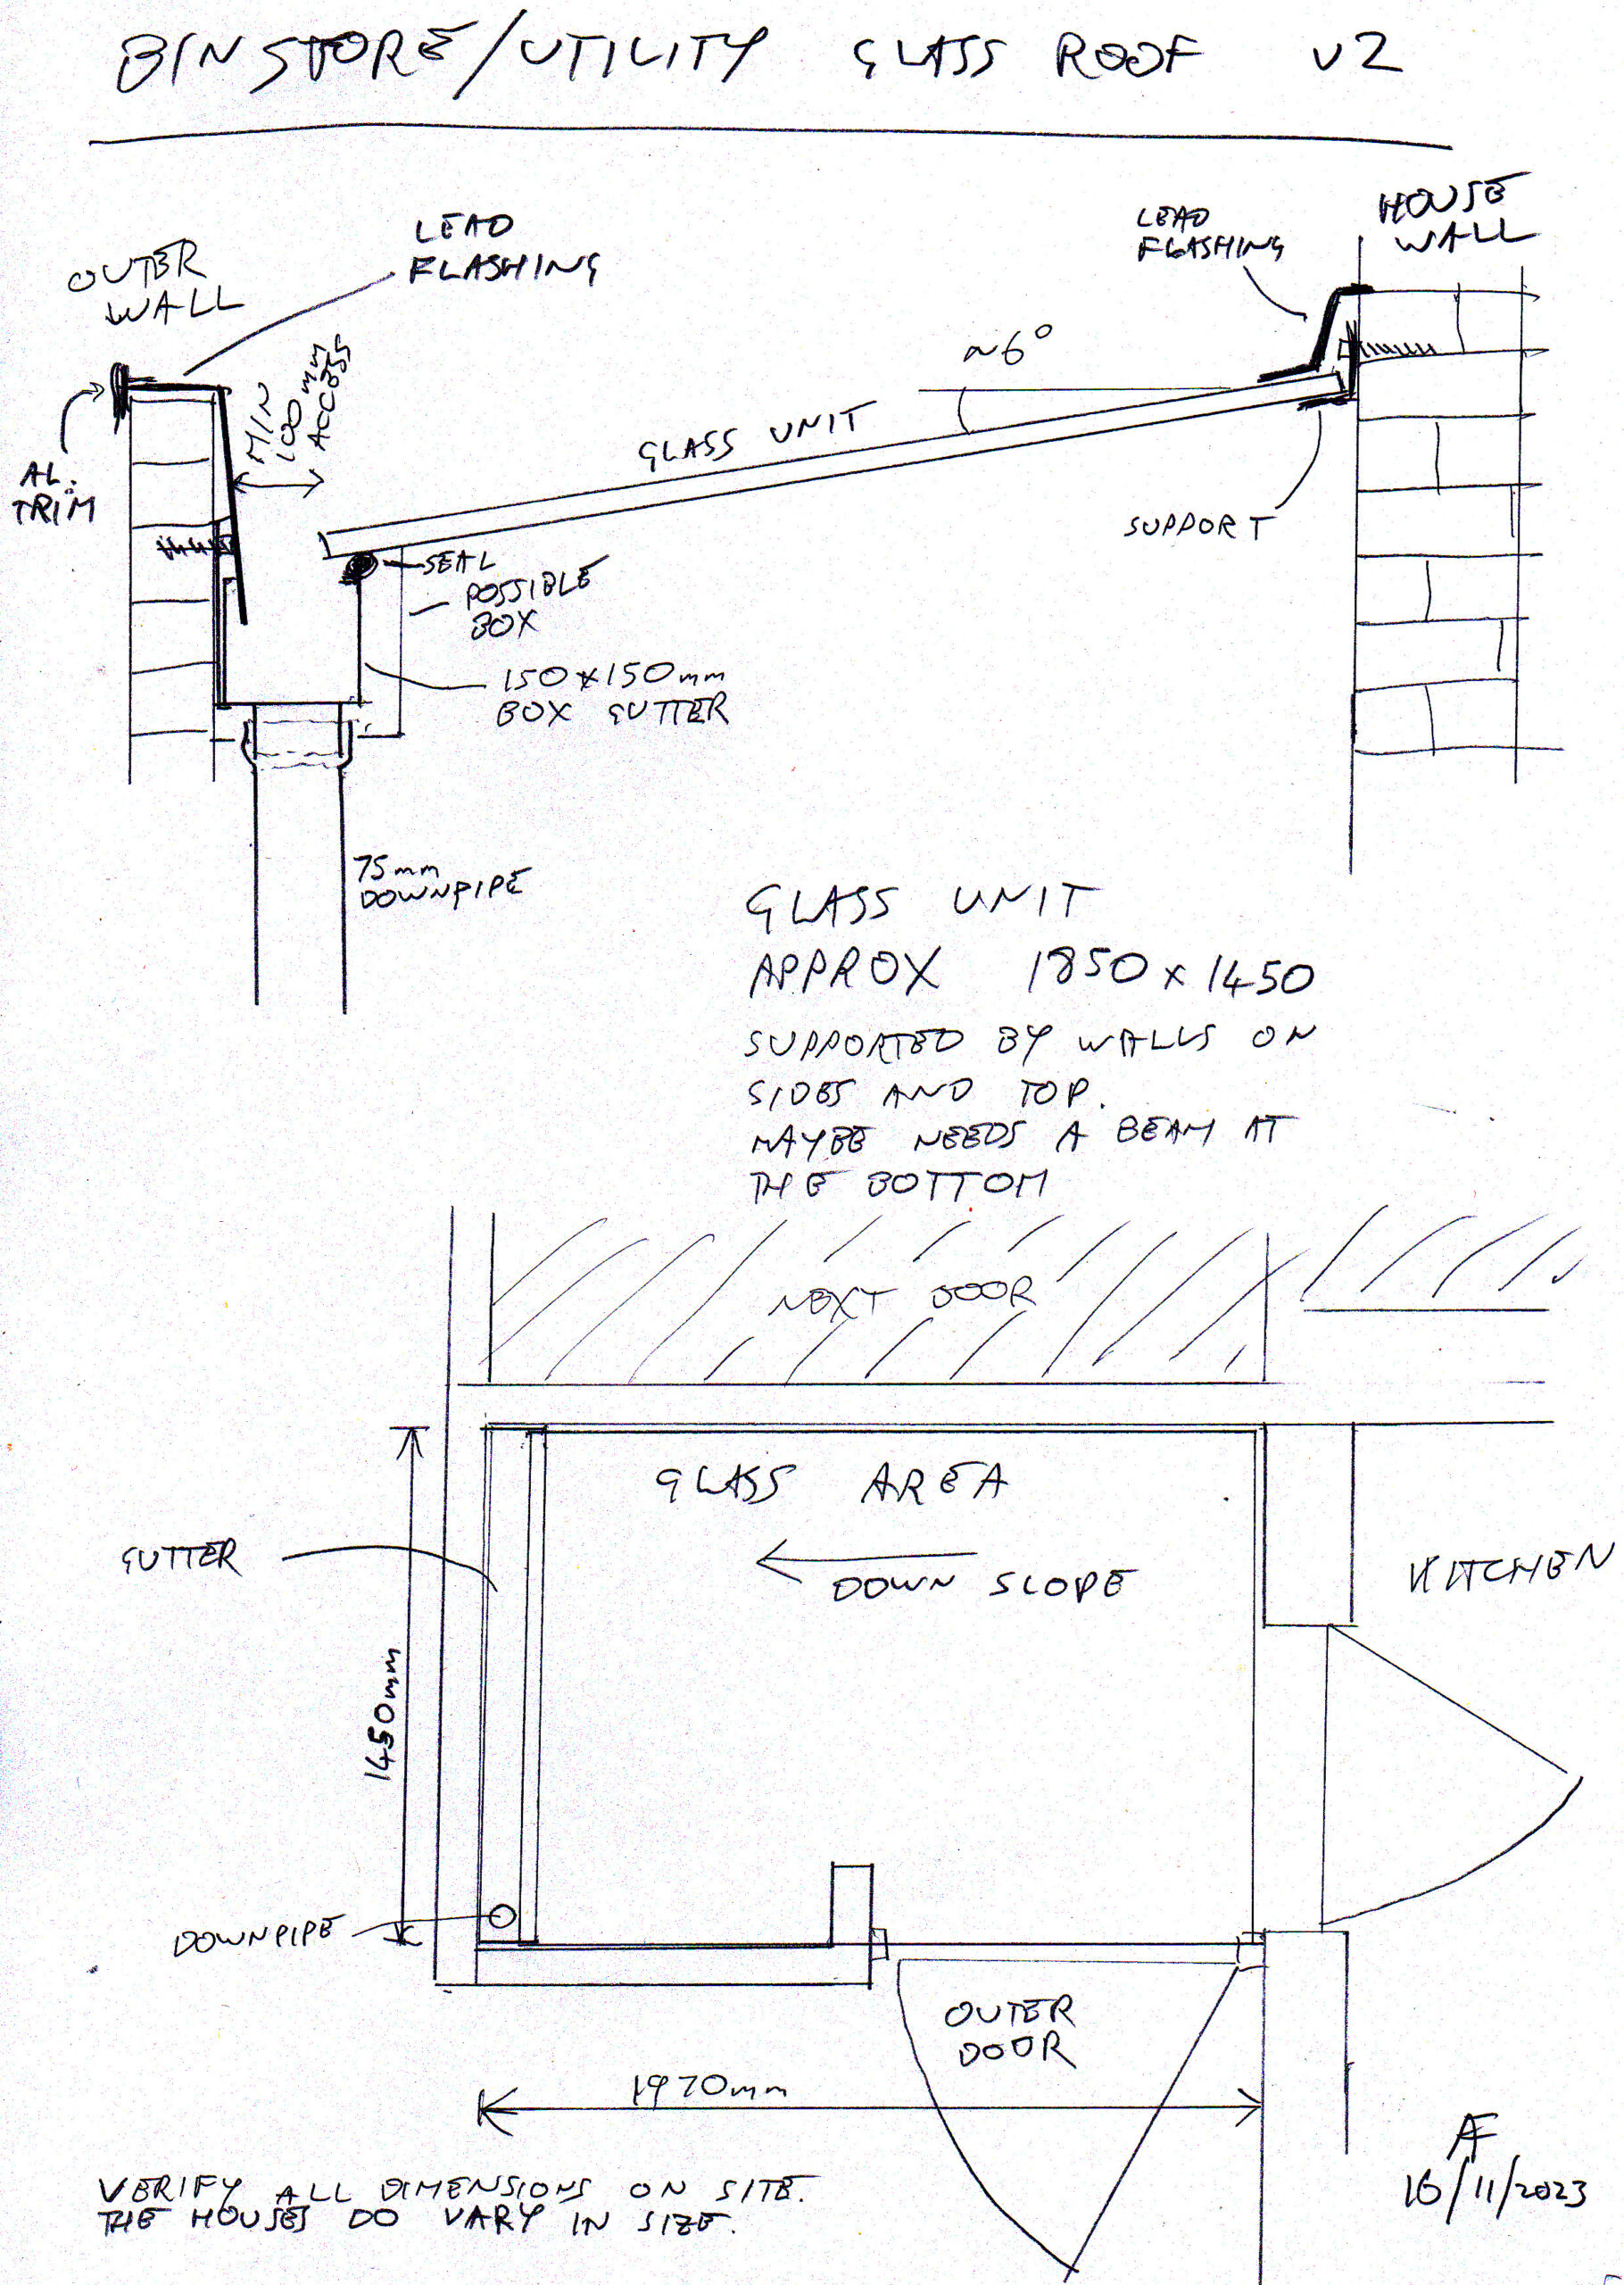 BIN STORE/UTILITY GLASS ROOF V2
OUTER
WALL
LEAD
FLASHING
LEAD
FLASHING
HOUSE
WALL
MIN
100mm
ACCESS
~6°
AL.
TRIM
GLASS UNIT
SUPPORT
SEAL
POSSIBLE
BOX
150x150mm
BOX GUTTER
75mm
DOWNPIPE
GLASS UNIT
APPROX 1850 x 1450
SUPPORTED BY WALLS ON
SIDES AND TOP.
MAYBE NEEDS A BEAM AT
THE BOTTOM
NEXT DOOR
GLASS AREA
DOWN SLOPE
GUTTER
KITCHEN
1450mm
DOWNPIPE
OUTER
DOOR
1970mm
AF
16/11/2023
VERIFY ALL DIMENSIONS ON SITE.
THE HOUSES DO VARY IN SIZE.